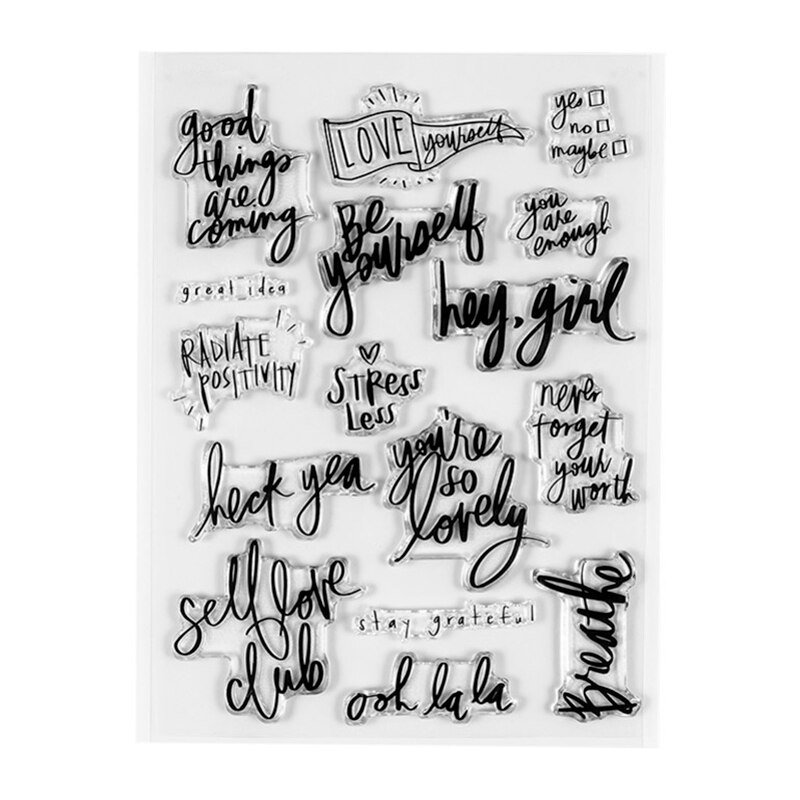 good
things
are
coming
LOVE yourself
yes
no
maybe
Be
yourself
you
are
enough
great idea
hey, girl
RADIATE
POSITIVITY
STRESS
LESS
never
forget
your
worth
heck yea
you're
so
lovely
self love
club
stay grateful
Breathe
ooh la la